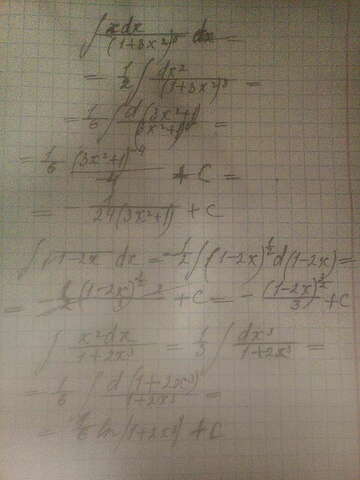 ∫ xdx/(1+3x²)³ =
= 1/2 ∫ dx²/(1+3x²)³ =
= 1/6 ∫ d(3x²+1)/(3x²+1) =
= 1/6 (3x²+1) + C =
= 1/24(3x²+1) + C
∫ √1-2x dx = -1/2 ∫(1-2x)^½ d(1-2x) =
= (1-2x) 2/3 + C = - (1-2x)/3 + C
∫ x²dx/1+2x³ = 1/3 ∫ dx³/1+2x³ =
= 1/6 ∫ d(1+2x³)/1+2x³ =
= 1/6 ln|1+2x³| + C